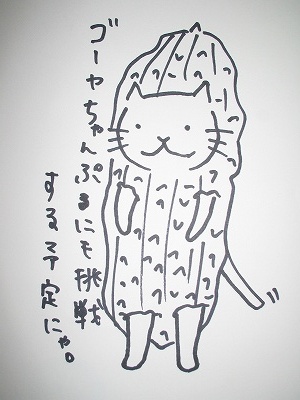 ゴーヤちゃんぷるにモ挑戦
する予定にゃ。